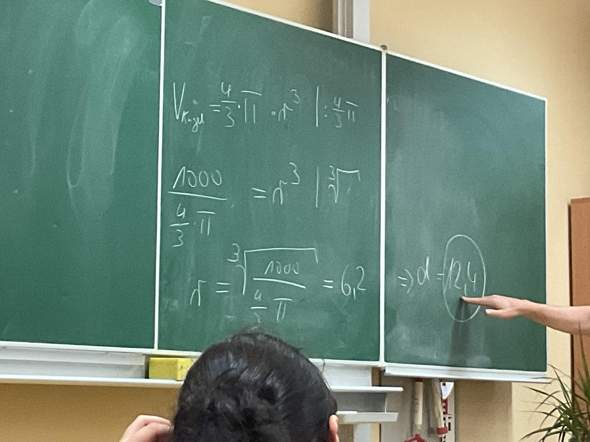 V_Kugel = 4/3 · π · r³ | : 4/3 π
1000 / (4/3 · π) = r³ | ³√
r = ³√(1000 / (4/3 π)) = 6,2 => d = 12,4